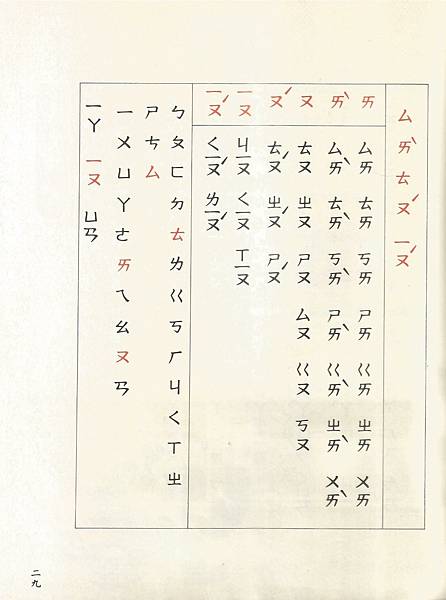 ㄙ ㄞˋ ㄊ ㄡˊ ㄧㄡˊ
ㄞ ㄙㄞ ㄊㄞ ㄎㄞ ㄕㄞ ㄍㄞ ㄓㄞ ㄨㄞ
ㄞˋ ㄙㄞˋ ㄊㄞˋ ㄎㄞˋ ㄕㄞˋ ㄍㄞˋ ㄓㄞˋ ㄨㄞˋ
ㄡ ㄊㄡ ㄓㄡ ㄕㄡ ㄙㄡ ㄍㄡ ㄎㄡ
ㄡˊ ㄊㄡˊ ㄓㄡˊ ㄕㄡˊ
ㄧㄡ ㄐㄧㄡ ㄑㄧㄡ ㄒㄧㄡ
ㄧㄡˊ ㄑㄧㄡˊ ㄌㄧㄡˊ
ㄅ ㄆ ㄈ ㄉ ㄊ ㄌ ㄍ ㄎ ㄏ ㄐ ㄑ ㄒ ㄓ
ㄕ ㄘ ㄙ
ㄧ ㄨ ㄩ ㄚ ㄜ ㄞ ㄟ ㄠ ㄡ ㄢ
ㄧㄚ ㄧㄡ ㄩㄢ
二九